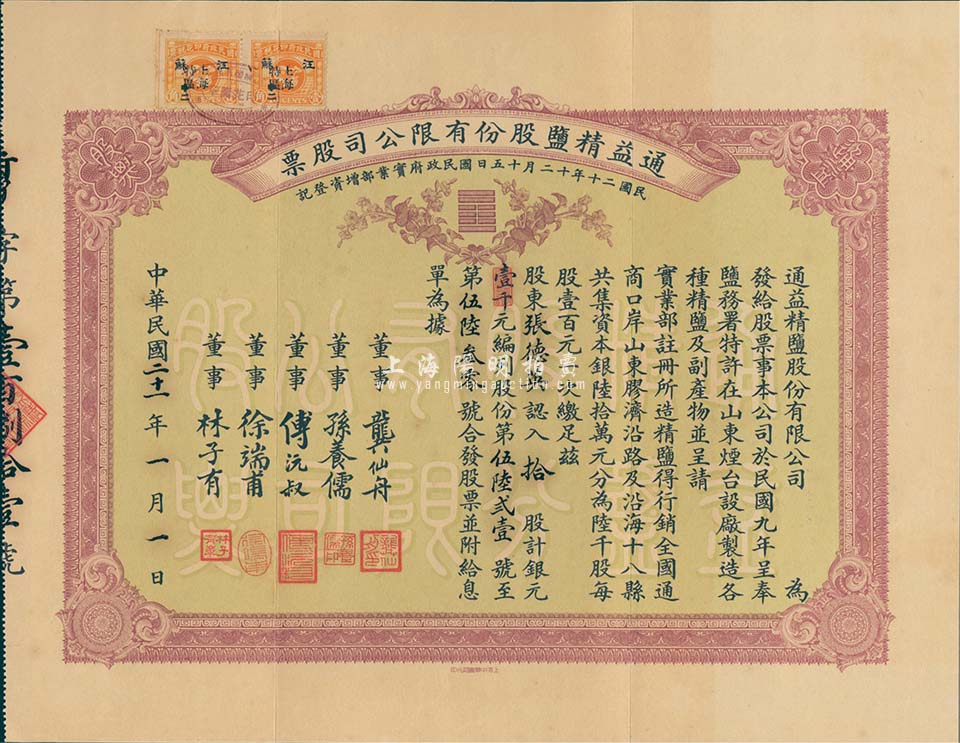 通益精鹽股份有限公司股票
民國二十年十二月十五日國民政府實業部增資登記
通益精鹽股份有限公司 為
發給股票事本公司於民國九年呈奉
鹽務署特許在山東煙台設廠製造各
種精鹽及副產物並呈請
實業部註冊所造精鹽得行銷全國通
商口岸山東膠濟沿路及沿海十八縣
共集資本銀陸拾萬元分為陸千股每
股壹百元一次繳足茲
股東張德 認入拾股計銀元
壹千元編列股份第伍陸貳壹號至
第伍陸叁零號合發股票並附給息
單為據
董事 龔仙舟
董事 孫養儒
董事 傅沅叔
董事 徐端甫
董事 林子有
中華民國二十一年一月一日
字第壹百捌拾壹號
江蘇
上海特區
江蘇
上海特區
CENTS
上海陽明拍賣
www.yangmingauction.com